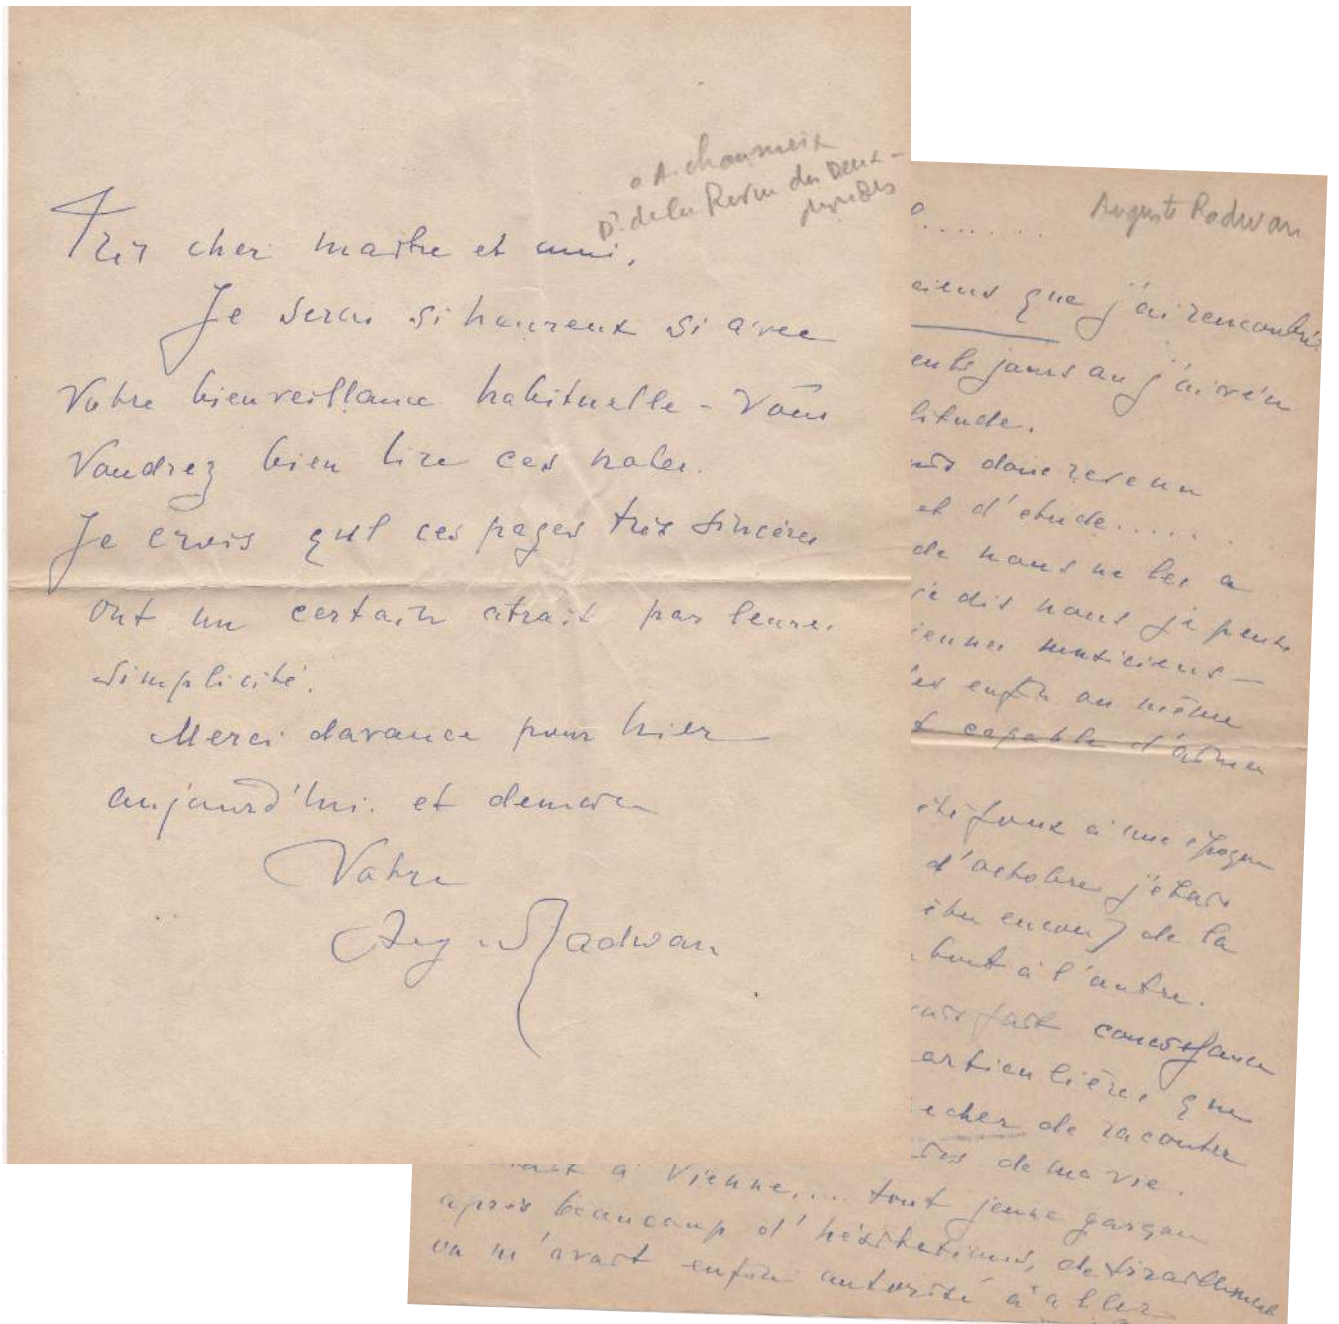 a A. Chaumeix
Dr de la Revue des Deux-
Mondes
Très cher maître et ami,
Je serai si heureux si avec
Votre bienveillance habituelle - Vous
Voudrez bien lire ces notes.
Je crois que ces pages très sincères
ont un certain atrait par leure
simplicité.
Merci davance pour hier
aujourd'hui. et demain
Votre
Aug. Radwan
Auguste Radwan
ciens que j'ai rencontrés
jours ou j'ai vécu
litude.
donc
et d'etude.....
de nous ne les a
je dis nous je pense
musiciens —
enfin au même
capable d'aimer
à une époque
d'octobre j'étais
encore) de la
bout à l'autre.
fait connaissance
articulières que
echer de raconter
de ma vie.
à Vienne,.... tout jeune garçon
après beaucoup d'hésitations, de tiraillements
on m'avait enfin autorisé à aller